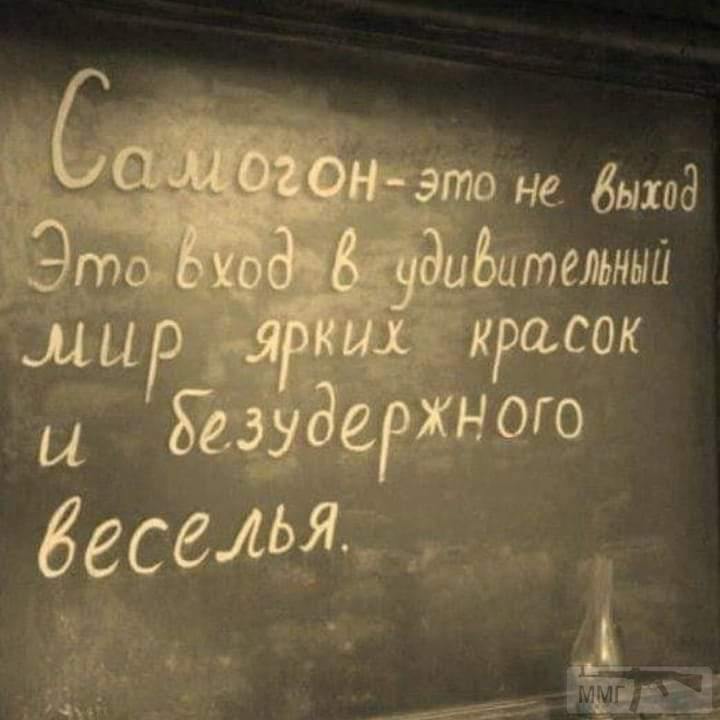 Самогон - это не выход
Это вход в удивительный
мир ярких красок
и безудержного
веселья.
ММГ